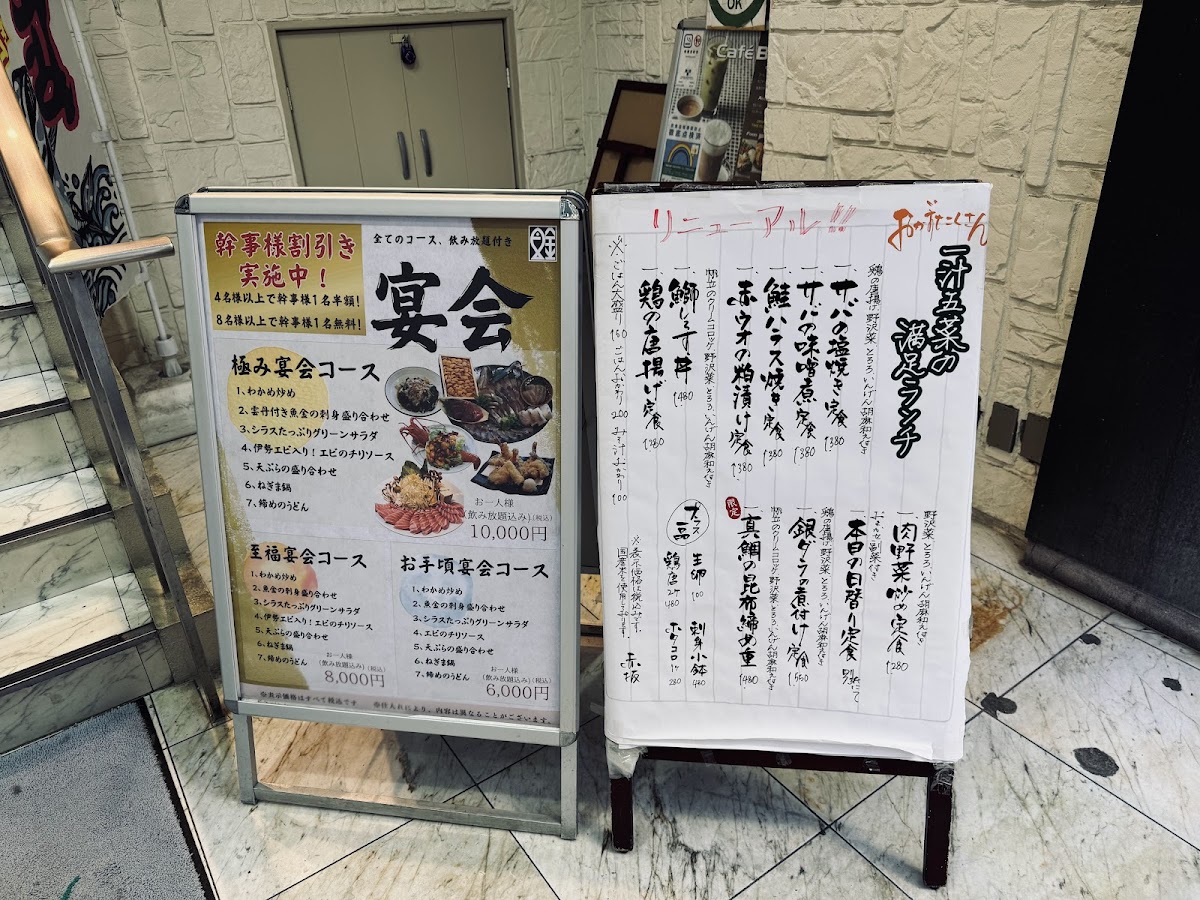 幹事様割引き
実施中！
4名様以上で幹事様1名半額！
8名様以上で幹事様1名無料！
全てのコース、飲み放題付き
宴会
極み宴会コース
1、わかめ炒め
2、雲丹付き魚金の刺身盛り合わせ
3、シラスたっぷりグリーンサラダ
4、伊勢エビ入り！エビのチリソース
5、天ぷらの盛り合わせ
6、ねぎま鍋
7、締めのうどん
お一人様
(飲み放題込み)(税込)
10,000円
至福宴会コース
1、わかめ炒め
2、魚金の刺身盛り合わせ
3、シラスたっぷりグリーンサラダ
4、伊勢エビ入り！エビのチリソース
5、天ぷらの盛り合わせ
6、ねぎま鍋
7、締めのうどん
お一人様
(飲み放題込み)(税込)
8,000円
お手頃宴会コース
1、わかめ炒め
2、魚金の刺身盛り合わせ
3、シラスたっぷりグリーンサラダ
4、エビのチリソース
5、天ぷらの盛り合わせ
6、ねぎま鍋
7、締めのうどん
お一人様
(飲み放題込み)(税込)
6,000円
※表示価格はすべて税込です
※仕入れにより、内容は異なることがございます。
リニューアル!!
おかずたくさん
一汁五菜の
満足ランチ
鶏の唐揚げ 野沢菜 とろろ いんげん胡麻和え付き
一、サバの塩焼き定食 1380
一、サバの味噌煮定食 1380
一、鮭ハラス焼き定食 1380
一、赤ウオの粕漬け定食 1380
帆立のクリームコロッケ 野沢菜 とろろ いんげん胡麻和え付き
一、鰤しらす丼 1480
一、鶏の唐揚げ定食 1280
※ごはん大盛り 150 ごはんおかわり 200 みそ汁おかわり 100
野沢菜 とろろ いんげん胡麻和え付き
一、肉野菜炒め定食 1280
おまかせ副菜付き
一、本日の日替り定食 別紙にて
鶏の唐揚げ 野沢菜 とろろ いんげん胡麻和え付き
一、銀ダラの煮付け定食 1550
帆立のクリームコロッケ 野沢菜 とろろ いんげん胡麻和え付き
限定
一、真鯛の昆布締め重 1480
プラス一品
生卵 100 刺身小鉢 480
鶏唐2ケ 460 ホタコロ1ケ 280
※表示価格は税込みです。
国産米を使用しております。
赤坂
Café
OK